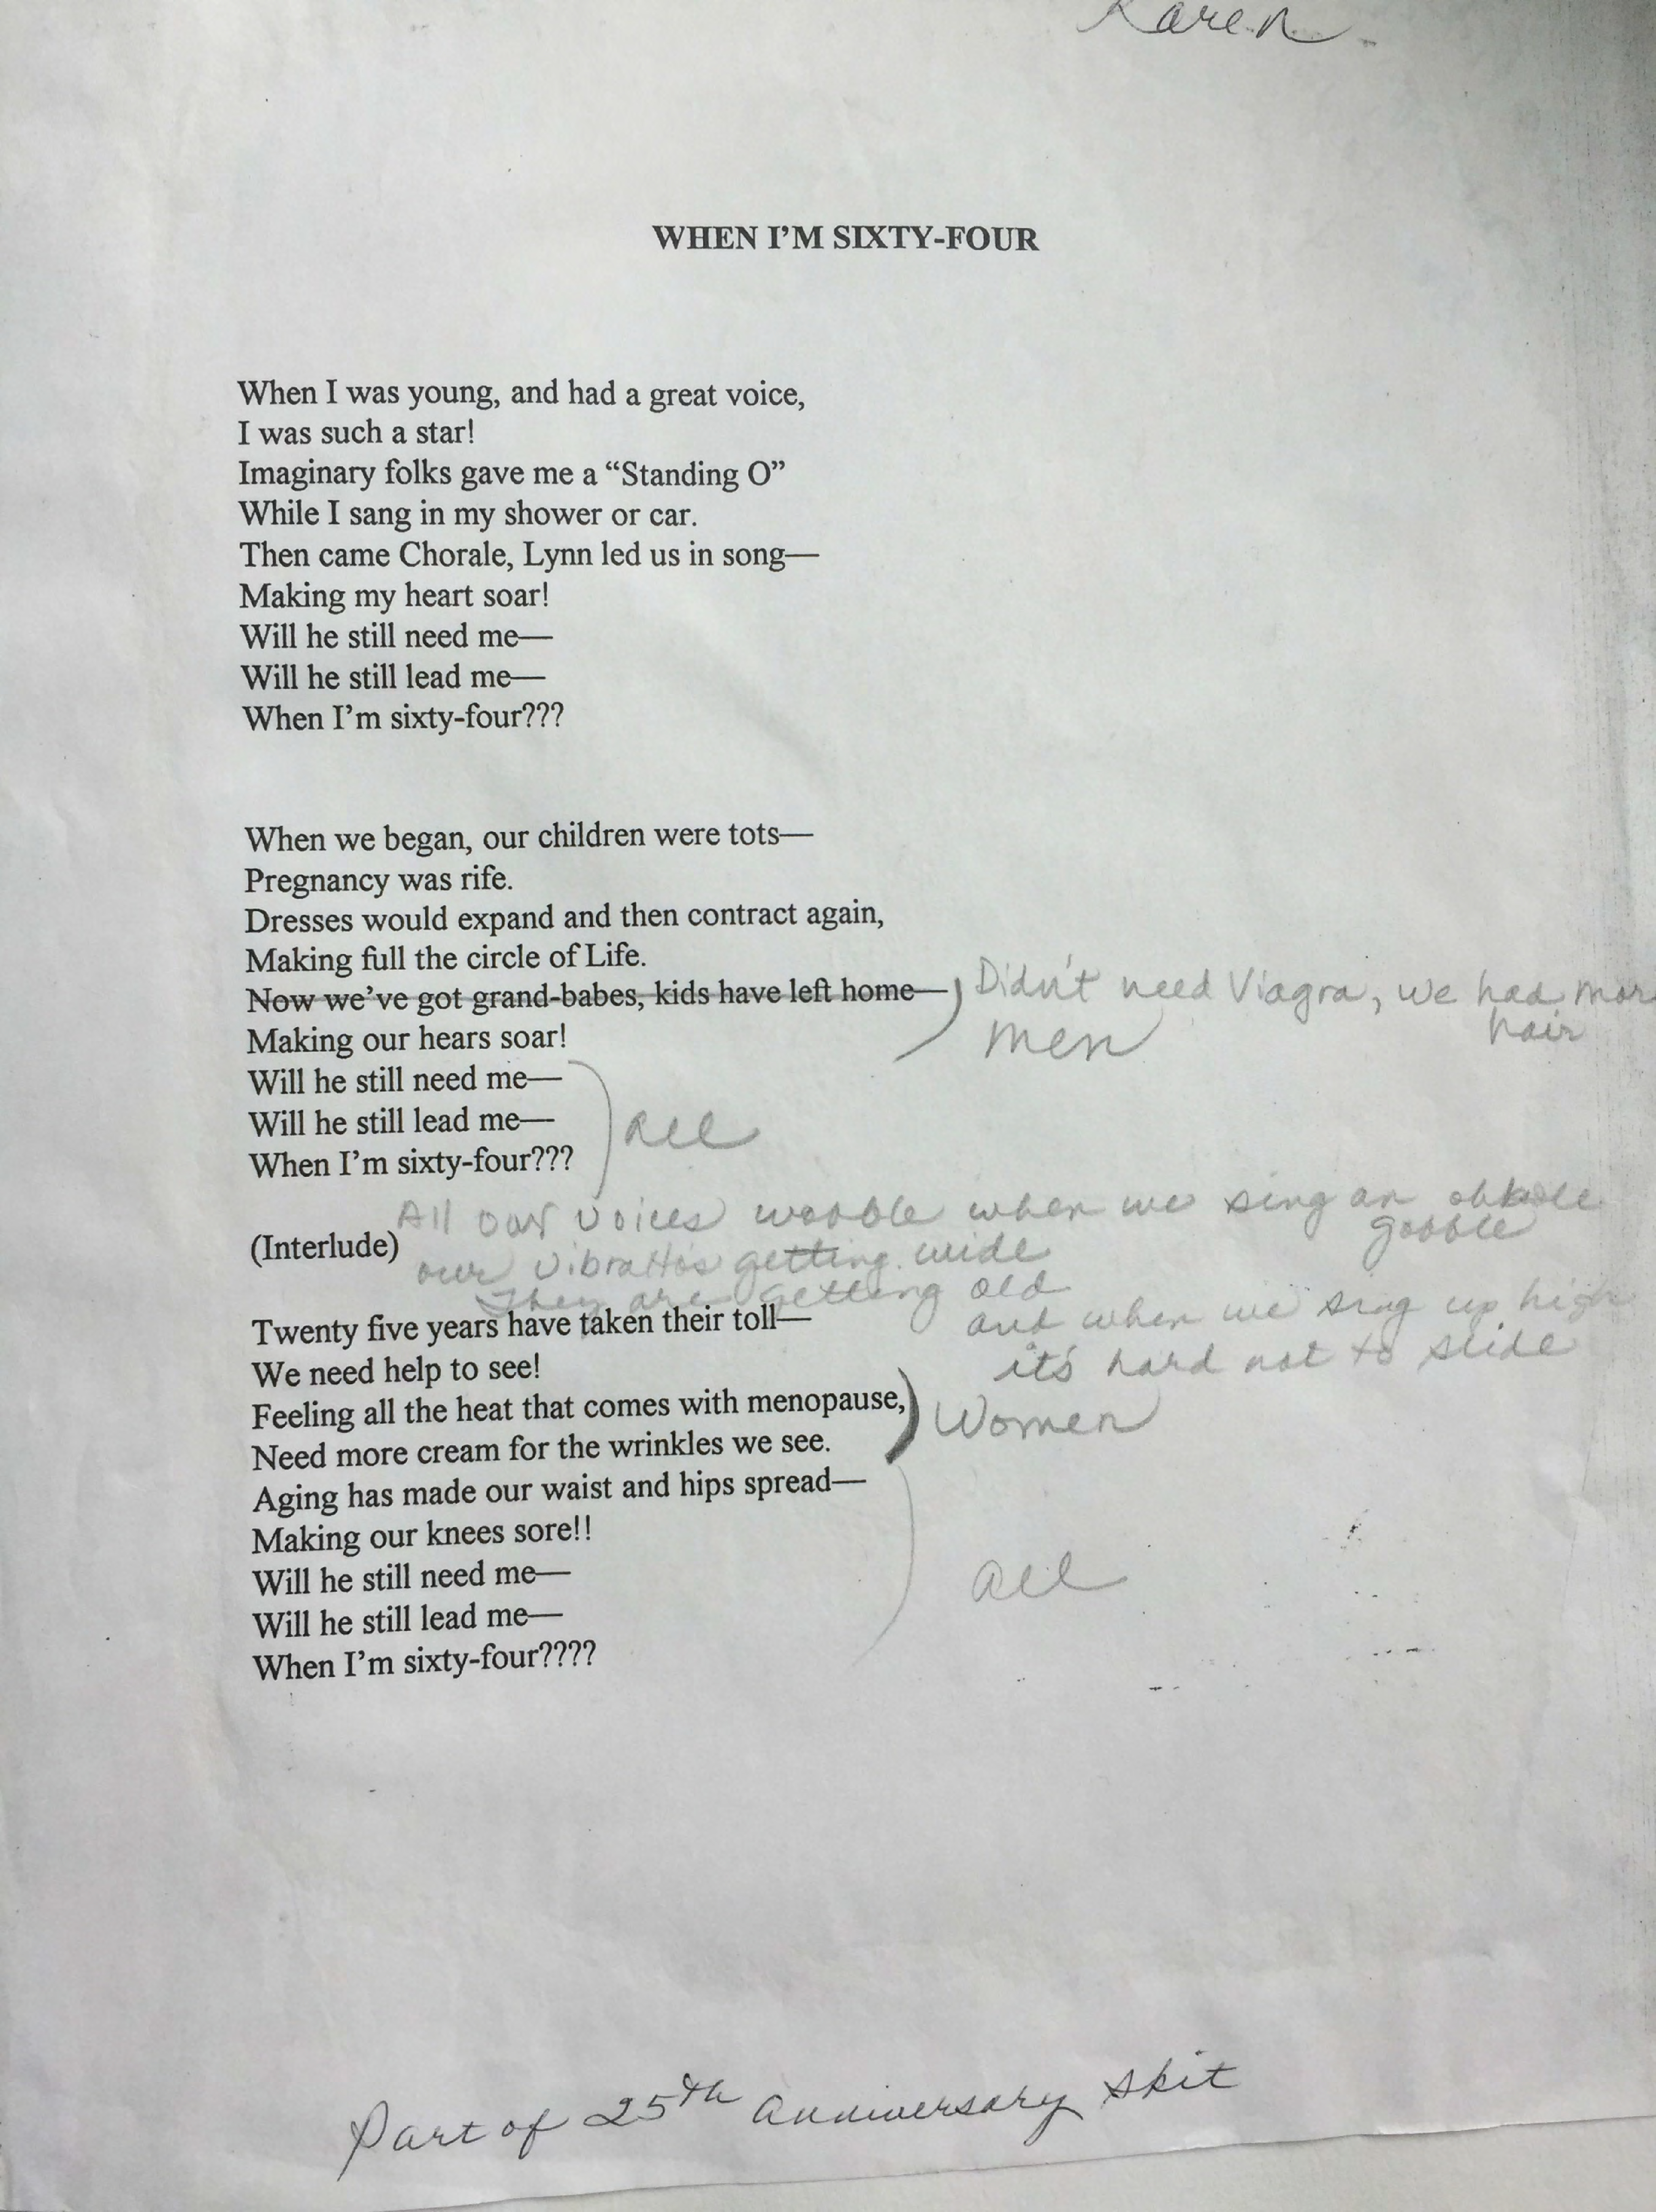 Karen
WHEN I'M SIXTY-FOUR
When I was young, and had a great voice,
I was such a star!
Imaginary folks gave me a “Standing O”
While I sang in my shower or car.
Then came Chorale, Lynn led us in song—
Making my heart soar!
Will he still need me—
Will he still lead me—
When I'm sixty-four???
When we began, our children were tots—
Pregnancy was rife.
Dresses would expand and then contract again,
Making full the circle of Life.
Now we've got grand-babes, kids have left home—
Didn't need Viagra, we had mor
hair
men
Making our hears soar!
Will he still need me—
Will he still lead me—
All
When I'm sixty-four???
All our voices wobble when we sing an
gobble
(Interlude)
our vibrattos getting wide
They are getting old
and when we sing up high
it's hard not to slide
Twenty five years have taken their toll—
We need help to see!
Feeling all the heat that comes with menopause,
Women
Need more cream for the wrinkles we see.
Aging has made our waist and hips spread—
Making our knees sore!!
Will he still need me—
all
Will he still lead me—
When I'm sixty-four????
Part of 25th anniversary skit